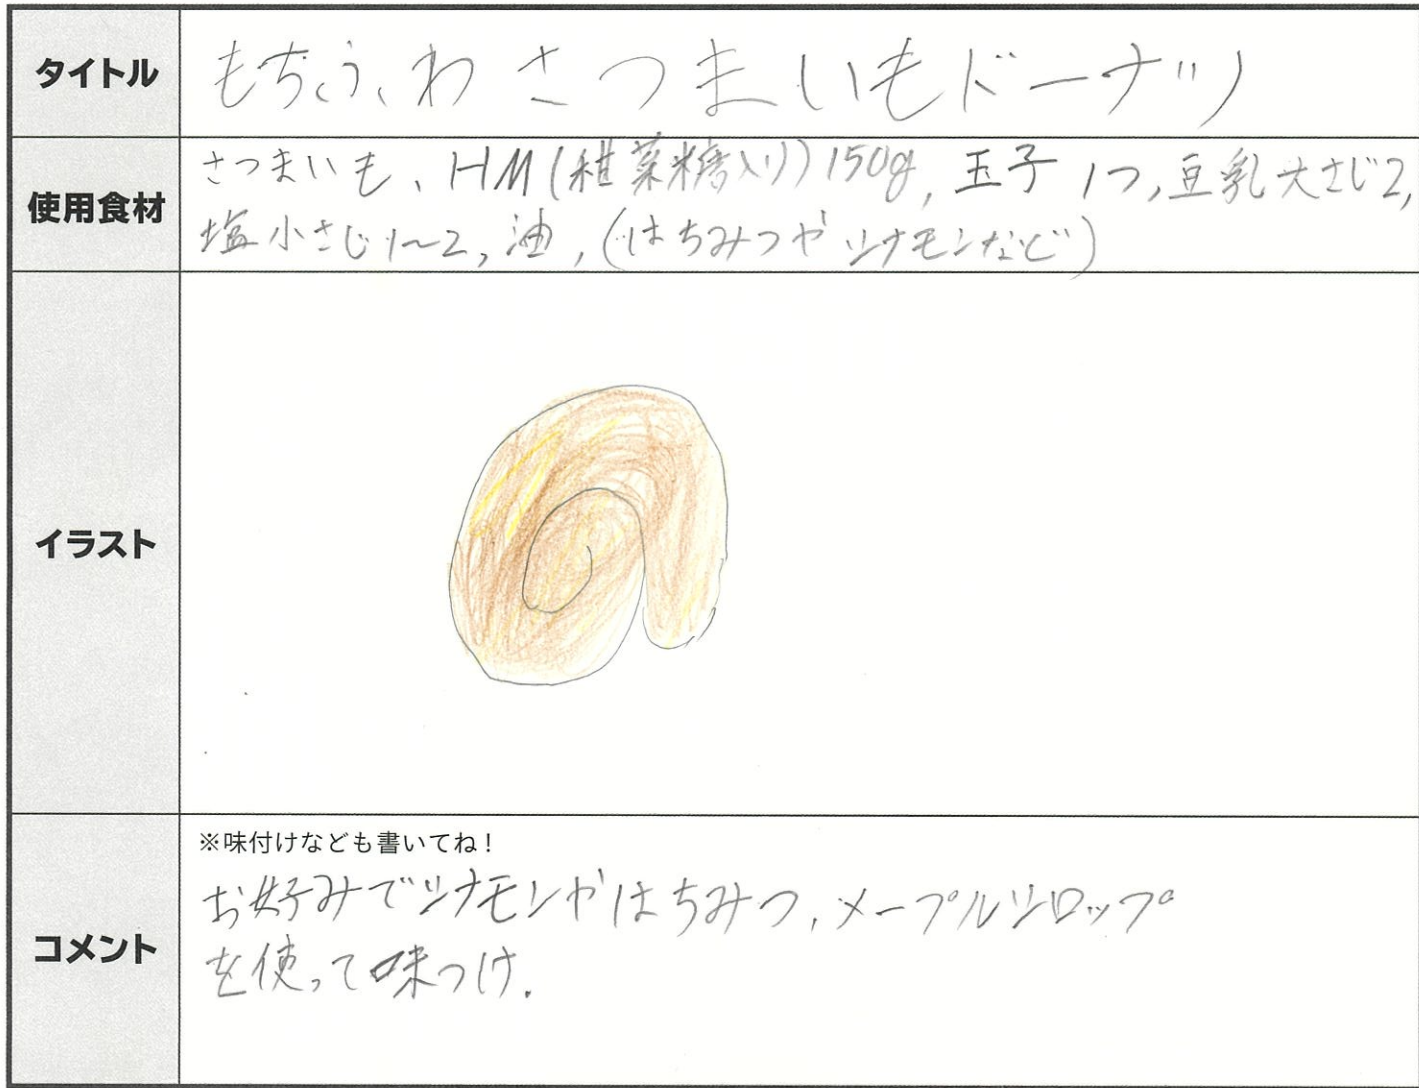 タイトル
もちふわ さつまいもドーナツ
使用食材
さつまいも、HM(甜菜糖入り)150g, 玉子1つ, 豆乳大さじ2,
塩小さじ1~2, 油, (はちみつやシナモンなど)
イラスト
コメント
※味付けなども書いてね!
お好みでシナモンやはちみつ, メープルシロップ
を使って味つけ.